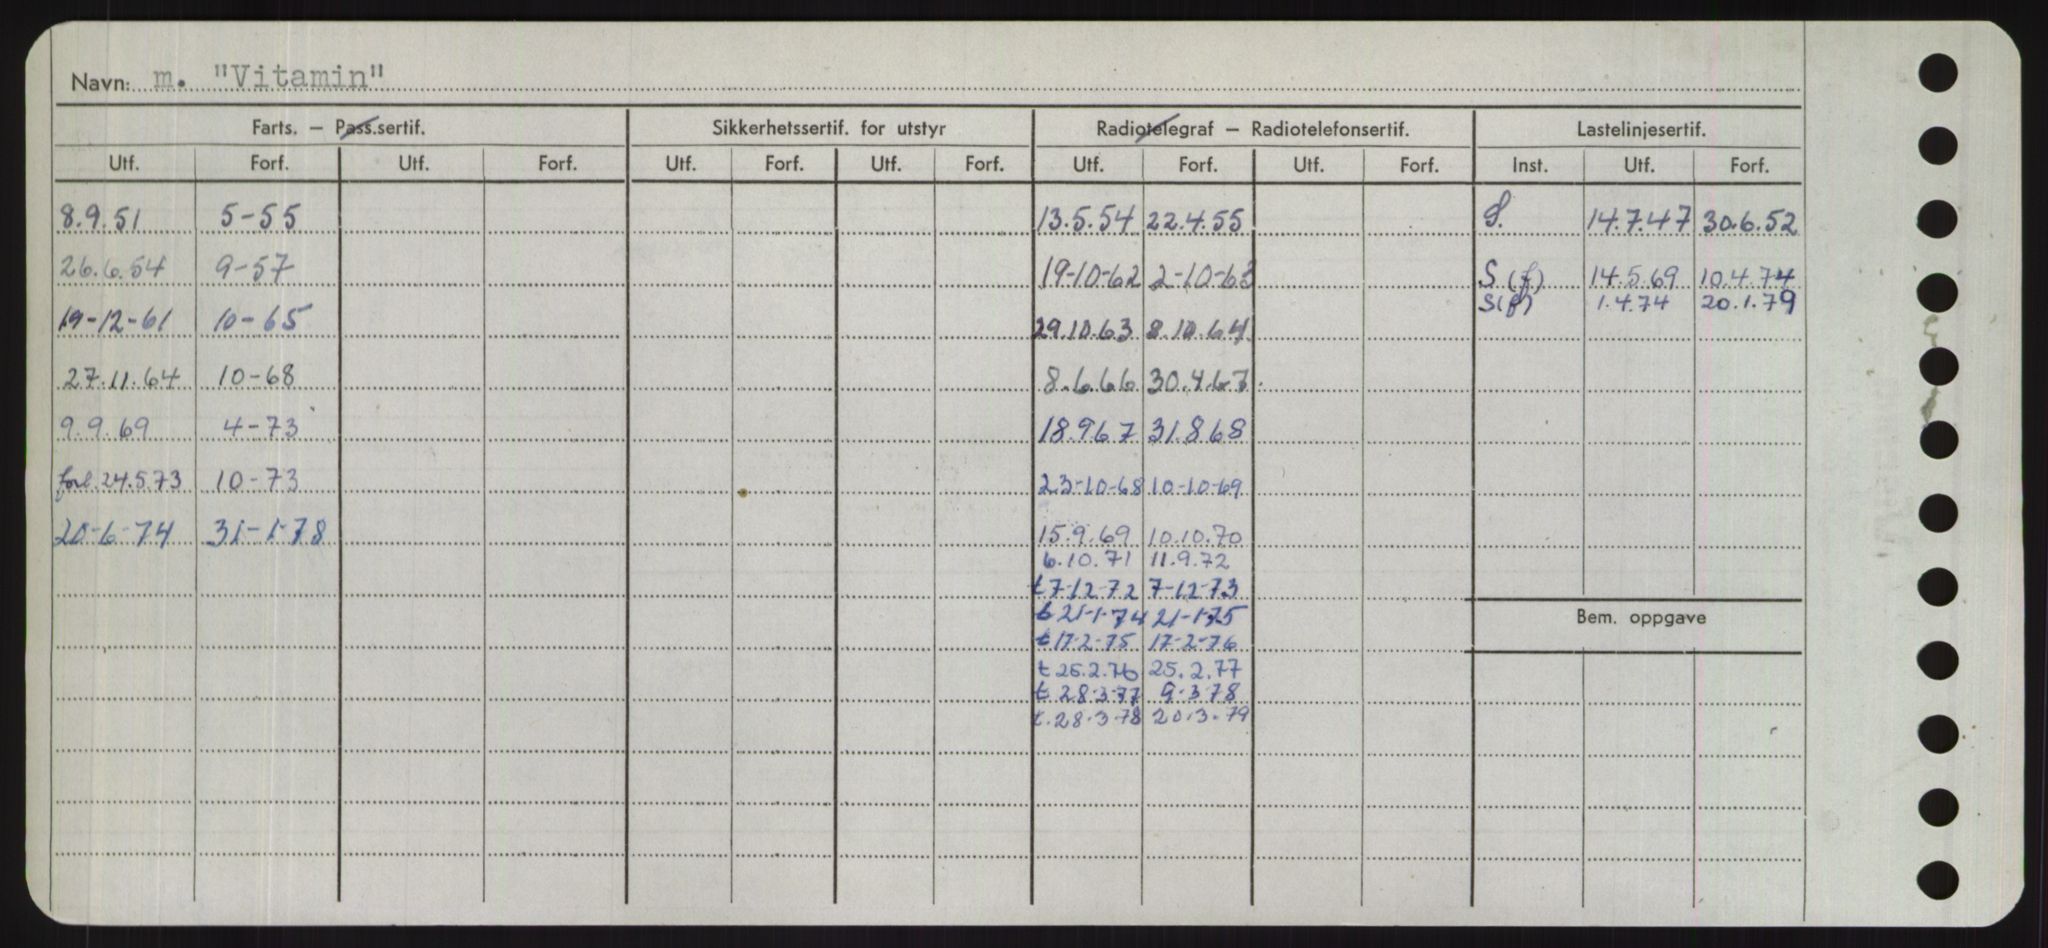 Navn: m. "Vitamin"
Farts. – Pass.sertif. Sikkerhetssertif. for utstyr Radiotelegraf – Radiotelefonsertif. Lastelinjesertif.
Utf. Forf. Utf. Forf. Utf. Forf. Utf. Forf. Utf. Forf. Utf. Forf. Inst. Utf. Forf.
8.9.51 5-55 13.5.54 22.4.55 S. 14.7.47 30.6.52
26.6.54 9-57 19-10-62 2-10-63 S (f) 14.5.69 10.4.74
S(f) 1.4.74 20.1.79
19-12-61 10-65 29.10.63 8.10.64
27.11.64 10-68 8.6.66 30.4.67
9.9.69 4-73 18.967 31.868
forl. 24.5.73 10-73 23-10-68 10-10-69
20-6-74 31-1-78 15.9.69 10.10.70
6.10.71 11.9.72
t 7-12-72 7-12-73
t 21-1-74 21-1-75
t 17-2-75 17-2-76
t 25.2.76 25.2.77
t. 28-3-77 9-3-78
t. 28-3-78 20.3.79
Bem. oppgave